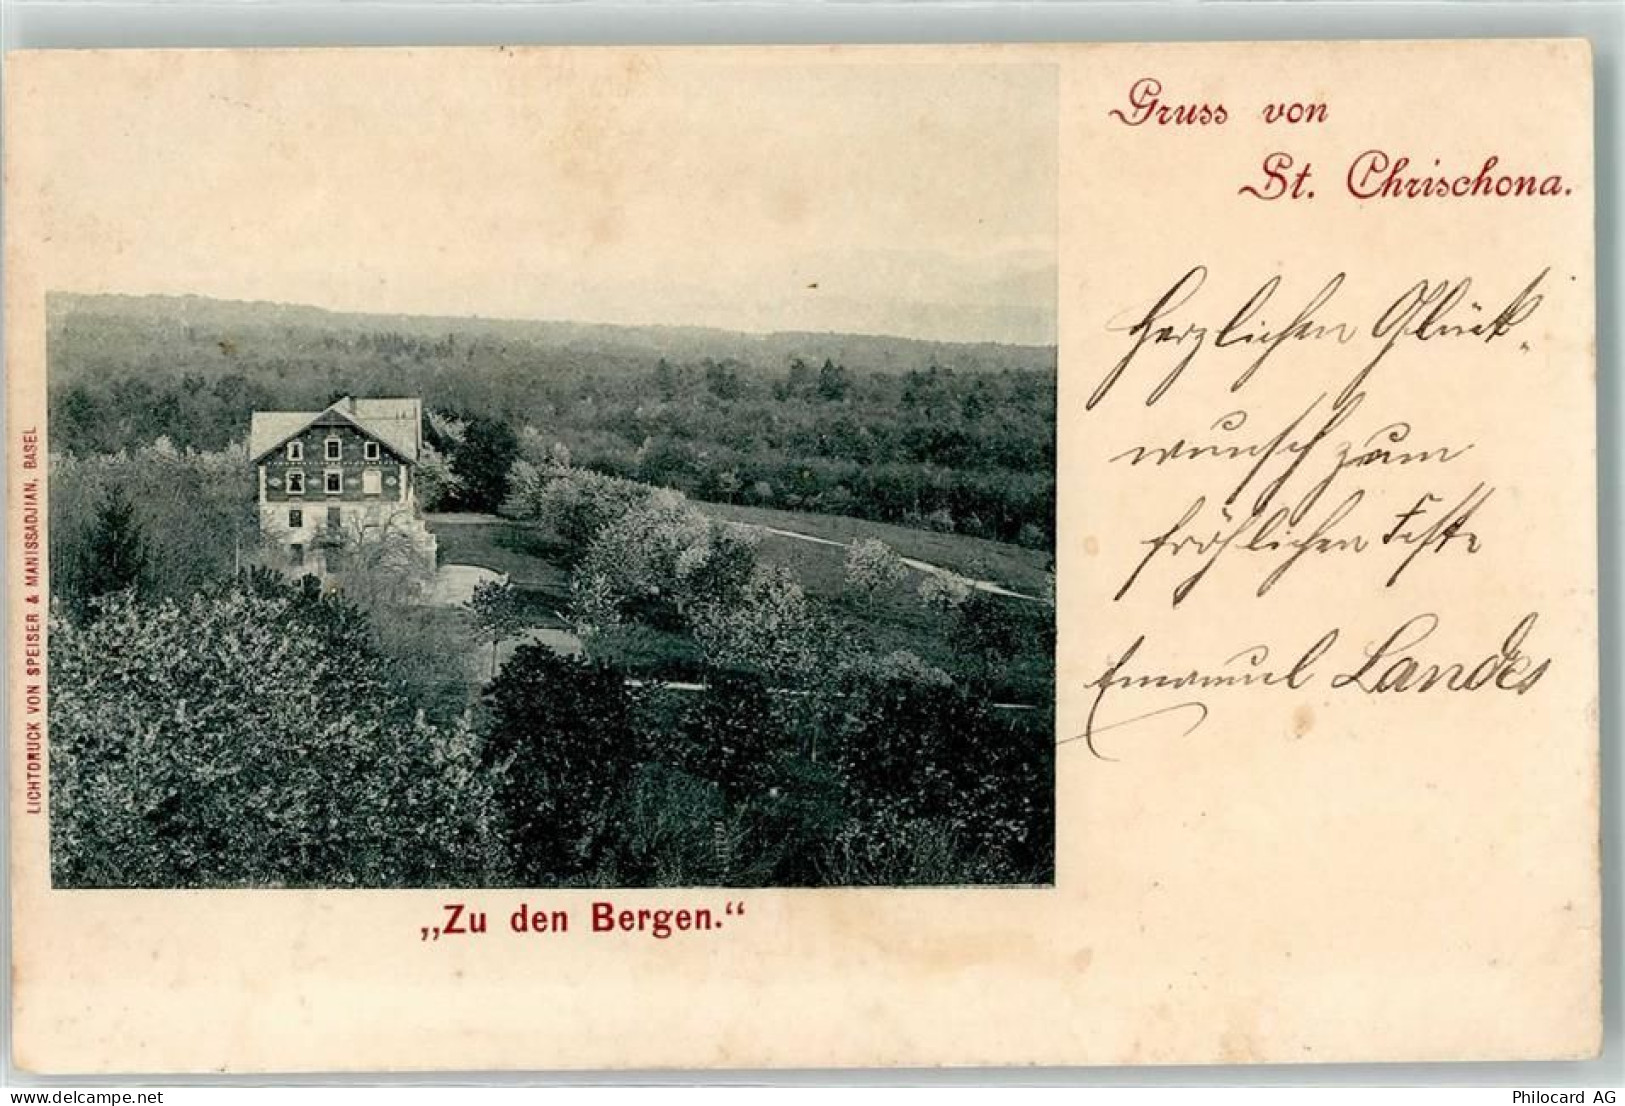 Gruss von
St. Chrischona.
Herzlichen Glück-
wunsch zum
fröhlichen Feste
Emanuel Landes
LICHTDRUCK VON SPEISER & MANISSADJIAN, BASEL
„Zu den Bergen.“
www.delcampe.net
Philocard AG